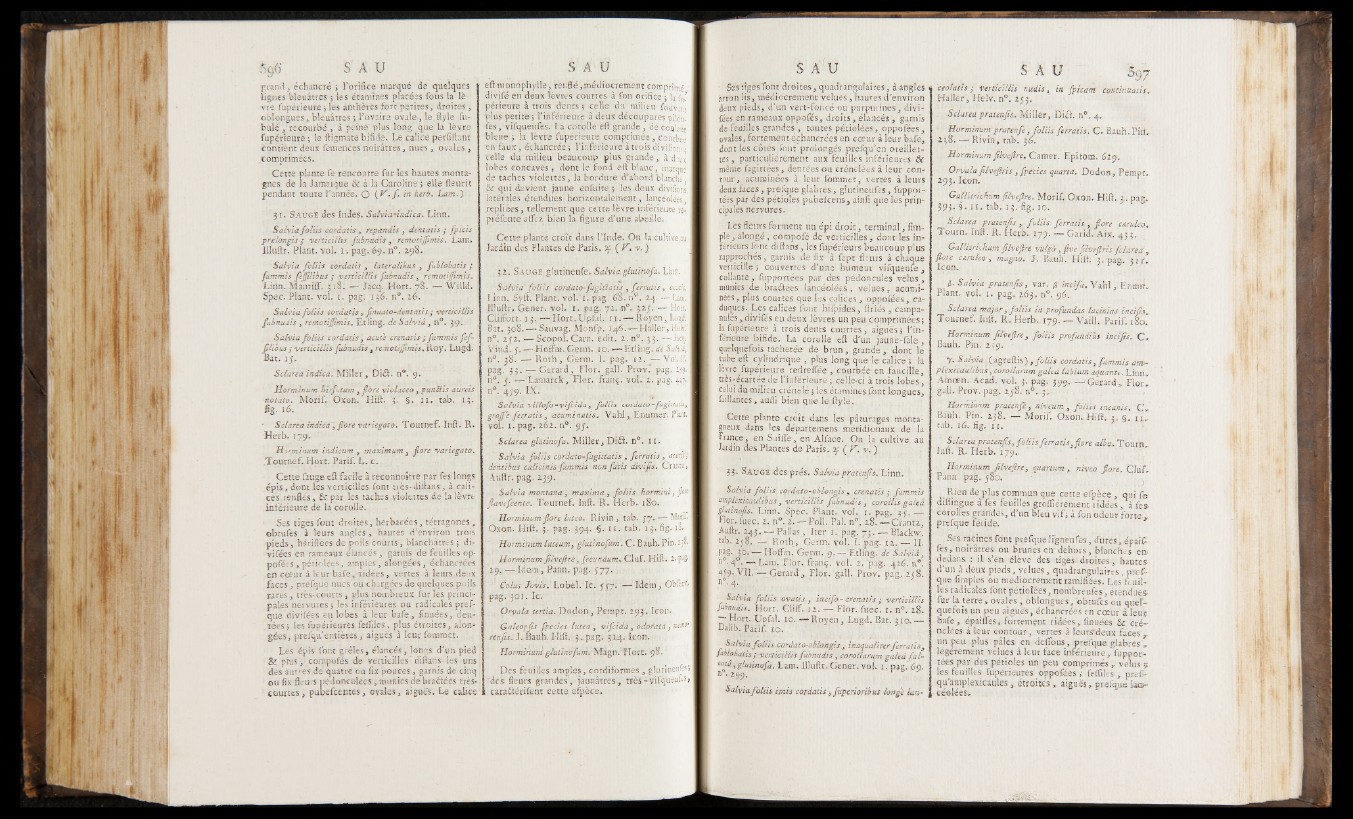 596 S A U
grand, échancré ; l'orifice marqué de quelques
lignes bleuâtres ; les étamines placées sous la lè-
vre supérieure ; les anthères fort petites, droites,
oblongues, bleuâtres ; l'ovaire ovale, le style su-
bulé, recourbé, à peine plus long que la lèvre
supérieure ; le stigmate bifide. Le calice persistant
contient deux semences noirâtres, nues, ovales,
comprimées.
Cette plante se rencontre sur les hautes monta-
gnes de la Jamaïque & à la Caroline ; elle fleurit
pendant toute l'année. ☉ (V. s. in herb. Lam.)
31. SAUGE des Indes. Salvia indica. Linn.
Salvia foliis cordatis, repandis, dentatis ; spicis
prelongis ; verticillis subnudis, remotissimis. Lam.
Illustr. Plant. vol. 1. pag. 69. n°. 298.
Salvia foliis cordatis, lateralibus, sublobatis ;
summis sessilibus ; verticillis subnudis, remotissimis.
Linn. Mantiss. 318. — Jacq. Hort. 78. — Willd.
Spec. Plant. vol. 1. pag. 136. n°. 26.
Salvia foliis cordatis, sinuato-dentatis ; verticillis
subnudis, remotissimis. Etling. de Salviâ, n°. 39.
Salvia foliis cordatis, acutè crenatis ; summis ses-
silibus ; verticillis subnudis, remotissimis. Roy. Lugd.
Bat. 15.
Sclarea indica. Miller, Dict. n°. 9.
Horminum hirsutum, flore violaceo, punctis aureis
notato. Moris. Oxon. Hist. 3. §. 11. tab. 13.
fig. 16.
Sclarea indica, flore variegato. Tournef. Inst. R.
Herb. 179.
Horminum indicum, maximum, flore variegato.
Tournef. Hort. Paris. L. c.
Cette sauge est facile à reconnoître par ses longs
épis, dont les verticilles sont très-distans, à cali-
ces renflés, & par les taches violettes de la lèvre
inférieure de la corolle.
Ses tiges sont droites, herbacées, tétragones,
obtuses à leurs angles, hautes d'environ trois
pieds, hérissées de poils courts, blanchâtres ; di-
visées en rameaux élancés, garnis de feuilles op-
posées, pétiolées, amples, alongées, échancrées
en cœur à leur base, ridées, vertes à leurs deux
faces, presque nues ou chargées de quelques poils
rares, très-courts, plus nombreux sur les princi-
pales nervures ; les inférieures ou radicales pres-
que divisées en lobes à leur base, sinuées, den-
tées ; les supérieures sessiles, plus étroites, alon-
gées, presqu'entières, aiguës à leur sommet.
Les épis sont grêles, élancés, longs d'un pied
& plus, composés de verticilles distans les uns
des autres de quatre ou six pouces, garnis de cinq
ou six fleurs pédonculées, munies de bractées très-
courtes, pubescentes, ovales, aiguës. Le calice
S A U
est monophylle, renflé, médiocrement comprimé,
divisé en deux lèvres courtes à son orifice ; la su-
périeure à trois dents ; celle du milieu souvent
plus petite ; l'inférieure à deux découpures
ses, visqueuses. La corolle est grande, de couleur
bleue ; la lèvre supérieure comprimée, courbée
en faux, échancrée ; l'inférieure à trois divisions ;
celle du milieu beaucoup plus grande, à deux
lobes concaves, dont le fond est blanc, marqué
de taches violettes, la bordure d'abord blanche,
& qui devient jaune ensuite ; les deux divisions
latérales étendues horizontalement, lancéolées,
repliées, tellement que cette lèvre inférieure re-
présente assez bien la figure d'une abeille.
Cette plante croît dans l'Inde. On la cultive au
Jardin des Plantes de Paris. ♃ (V. v.)
32. SAUGE glutineuse. Salvia glutinosa. Linn.
Salvia foliis cordato-sagittatis, serratis, acutis.
Linn. Syst. Plant. vol. 1. pag. 68. n°. 24. — Lam.
Illustr. Gener. vol. 1. pag. 72. n°. 325. — Hort.
Cliffort. 13. — Hort. Upsal. 11. — Royen, Lugd.
Bat. 308. — Sauvag. Monsp. 146. — Haller, Helv.
n°. 252. — Scopol. Carn. edit. 2. n°. 33. — Jacq.
Vind. 5. — Hoffm. Germ. 10. — Etling. de Salviâ,
n°. 38. — Roth, Germ. 1. pag. 12. —
pag. 33. — Gerard, Flor. gall. Prov. pag.
n°. 5. — Lamarck, Flor. franç. vol. 2. pag.
n°. 459. IX.
Salvia villoso-viscida, foliis cordato-sagittatis,
grossè serratis, acuminatis. Vahl, Enumer. Plant.
vol. 1. pag. 262. n°. 95.
Sclarea glutinosa. Miller, Dict. n°. 11.
Salvia foliis cordato-sagittatis, serratis,
dentibus calicinis summis non satis divisis. Crantz,
Austr. pag. 239.
Salvia montana, maxima, foliis hormini, flore
flavescente. Tournef. Inst. R. Herb. 180.
Horminum flore luteo. Rivin, tab. 57. — Moris.
Oxon. Hist. 3. pag. 394. §. 11. tab. 13. fig. 11.
Horminum luteum, glutinosum. C. Bauh. Pin. 238.
Horminum silvestre, secundum. Cluf. Hist. 2. pag.
29. — Idem, Pann. pag. 577.
Colus Jovis. Lobel. Ic. 557. — Idem, Observ.
pag. 301. Ic.
Orvala tertia. Dodon, Pempt. 293. Icon.
Galeopsis species lutea, viscida, odorata,
rensis. J. Bauh. Hist. 3. pag. 314. Icon.
Horminum glutinosum. Magn. Hort. 98.
Des feuilles amples, cordiformes, glutineuses ;
des fleurs grandes, jaunâtres, très-visqueuses,
caractérisent cette espèce.
S A U
Ses tiges sont droites, quadrangulaires, à angles
arrondis, médiocrement velues, hautes d'environ
deux pieds, d'un vert-foncé ou purpurines, divi-
sées en rameaux opposés, droits, élancés, garnis
de feuilles grandes, toutes pétiolées, opposées,
ovales, fortement échancrées en cœur à leur base,
dont les côtés sont prolongés presqu'en oreillet-
tes, particuliérement aux feuilles inférieures &
même sagittées, dentées ou crénelées à leur con-
tour, acuminées à leur sommet, vertes à leurs
deux faces, presque glabres, glutineuses, suppor-
tées par des pétioles pubescens, ainsi que les prin-
cipales nervures.
Les fleurs forment un épi droit, terminal, sim-
ple, alongé, composé de verticilles, dont les in-
férieurs sont distans, les supérieurs beaucoup plus
rapprochés, garnis de six à sept fleurs à chaque
verticille ; couvertes d'une humeur visqueuse,
collante, supportées par des pédoncules velus,
munies de bractées lancéolées, velues, acumi-
nées, plus courtes que les calices, opposées, ca-
duques. Les calices sont hispides, striés, campa-
nulés, divisés en deux lèvres un peu comprimées ;
la supérieure à trois dents courtes, aiguës ; l'in-
férieure bifide. La corolle est d'un jaune-sale,
quelquefois tachetée de brun, grande, dont le
tube est cylindrique, plus long que le calice ; la
lèvre supérieure redressée, courbée en faucille,
très-écartée de l'inférieure ; celle-ci à trois lobes,
celui du milieu crénelé ; les étamines sont longues,
saillantes, aussi bien que le style.
Cette plante croît dans les pâturages monta-
gneux dans les départemens méridionaux de la
France, en Suisse, en Alsace. On la cultive au
Jardin des Plantes de Paris. ♃ (V. v.)
33. SAUGE des prés. Salvia pratensis. Linn.
Salvia foliis cordato-oblongis, crenatis ; summis
amplexicaulibus, verticillis subnudis, corollis galeâ
glutinosis. Linn. Spec. Plant. vol. 1. pag. 35. —
Flor. suec. 2. n°. 2. — Poll. Pal. n°. 28. — Crantz,
Austr. 245. — Pallas, Iter 1. pag. 73. — Blackw.
tab. 258. — Roth, Germ. vol. I. pag. 12. — II.
pag. 30. — Hoffm. Germ. 9. — Etling. de Salviâ,
n°. 40. — Lam. Flor. franç. vol. 2. pag. 426. n°.
459. VII. — Gerard, Flor. gall. Prov. pag. 258.
n°. 4.
Salvia foliis ovatis, inciso-crenatis ; verticillis
subnudis. Hort. Cliff. 12. — Flor. suec. 1. n°. 28.
— Hort. Upsal. 10. — Royen, Lugd. Bat. 310. —
Dalib. Paris. 10.
Salvia foliis cordato-oblongis, inaequaliter serratis,
sublobatis ; verticillis subnudis, corollarum galeâ fal-
catâ, glutinosâ. Lam. Illustr. Gener. vol. 1. pag. 69.
n°. 299.
Salvia foliis imis cordatis, superioribus longè lan-
S A U 597
ceolatis ; verticillis nudis, in spicam continuatis.
Haller, Helv. n°. 253.
Sclarea pratensis. Miller, Dict. n°. 4.
Horminum pratense, foliis serratis. C. Bauh. Pin.
238. — Rivin, tab. 36.
Horminum silvestre. Camer. Epitom. 629.
Orvala silvestris, species quarta. Dodon, Pempt.
293. Icon.
Gallitrichum silvestre. Moris. Oxon. Hist. 3. pag.
393. §. 11. tab. 13. fig. 10.
Sclarea pratensis, foliis serratis, flore ceruleo.
Tourn. Inst. R. Herb. 179. — Garid. Aix. 433.
Gallitrichum silvestre vulgò, sive silvestris sclarea,
flore ceruleo, magno. J. Bauh. Hist. 3. pag. 311.
Icon.
β. Salvia pratensis, var. β incisa. Vahl, Enum.
Plant. vol. 1. pag. 263. n°. 96.
Sclarea major, foliis in profundas lacinias incisis.
Tournef. Inst. R. Herb. 179. — Vaill. Paris. 180.
Horminum silvestre, foliis profundius incisis. C.
Bauh. Pin. 239.
γ. Salvia (agrestis), foliis cordatis, summis am-
plexicaulibus, corollarum galea labium aequante. Linn.
Amoen. Acad. vol. 3. pag. 399. — Gerard, Flor.
gall. Prov. pag. 258. n°. 3.
Horminum pratense, niveum, foliis incanis. C.
Bauh. Pin. 238. — Moris. Oxon. Hist. 3. §. 11.
tab. 16. fig. 11.
Sclarea pratensis, foliis serratis, flore albo. Tourn.
Inst. R. Herb. 179.
Horminum silvestre, quartum, niveo flore. Cluf.
Pann. pag. 580.
Rien de plus commun que cette espèce, qui se
distingue à ses feuilles grossiérement ridées, à ses
corolles grandes, d'un bleu vif ; à son odeur forte,
presque fétide.
Ses racines sont presque ligneuses, dures, épais-
ses, noirâtres ou brunes en dehors, blanches en
dedans : il s'en élève des tiges droites, hautes
d'un à deux pieds, velues, quadrangulaires, pres-
que simples ou médiocrement ramifiées. Les feuil-
les radicales sont pétiolées, nombreuses, étendues
sur la terre, ovales, oblongues, obtuses ou quel-
quefois un peu aiguës, échancrées en cœur à leur
base, épaisses, fortement ridées, sinuées & cré-
nelées à leur contour, vertes à leurs deux faces,
un peu plus pâles en dessous, presque glabres,
légérement velues à leur face inférieure, suppor-
tées par des pétioles un peu comprimés, velus ;
les feuilles supérieures opposées, sessiles, pres-
qu'amplexicaules, étroites, aiguës, presque lan-
céolées.